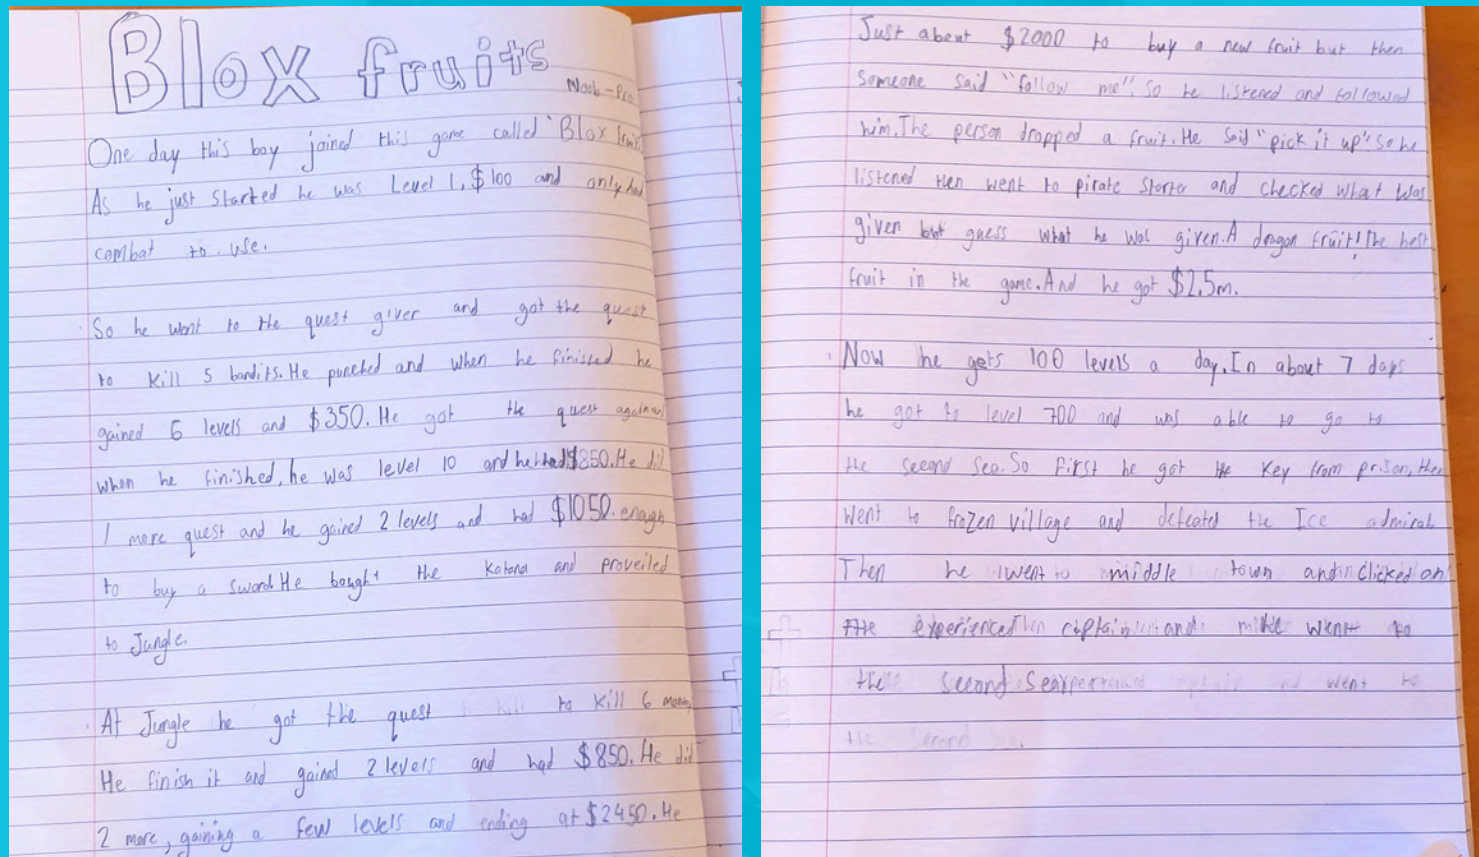 Blox fruits
Noob-Pro
One day this boy joined this game called "Blox fruits
As he just started he was Level 1, $100 and only had
combat to use.
So he went to the quest giver and got the quest
to kill 5 bandits. He punched and when he finissed he
gained 6 levels and $350. He got the quest again and
when he finished, he was level 10 and he had $850. He did
1 more quest and he gained 2 levels and had $1050. enough
to buy a sword. He bought the katana and proveiled
to Jungle.
At Jungle he got the quest to kill 6 monkey
He finish it and gained 2 levels and had $850. He did
2 more, gaining a few levels and ending at $2450. He
Just about $2000 to buy a new fruit but then
someone said "follow me". So he listened and followed
him. The person dropped a fruit. He said "pick it up" so he
listened then went to pirate starter and checked what was
given but guess what he was given. A dragon fruit! The best
fruit in the game. And he got $2,5m.
Now he gets 100 levels a day. In about 7 days
he got to level 700 and was able to go to
the second sea. So first he got the key from prison, then
went to frozen village and defeated the Ice admiral.
Then he went to middle town and clicked on
the experienced captain and went to
the second sea